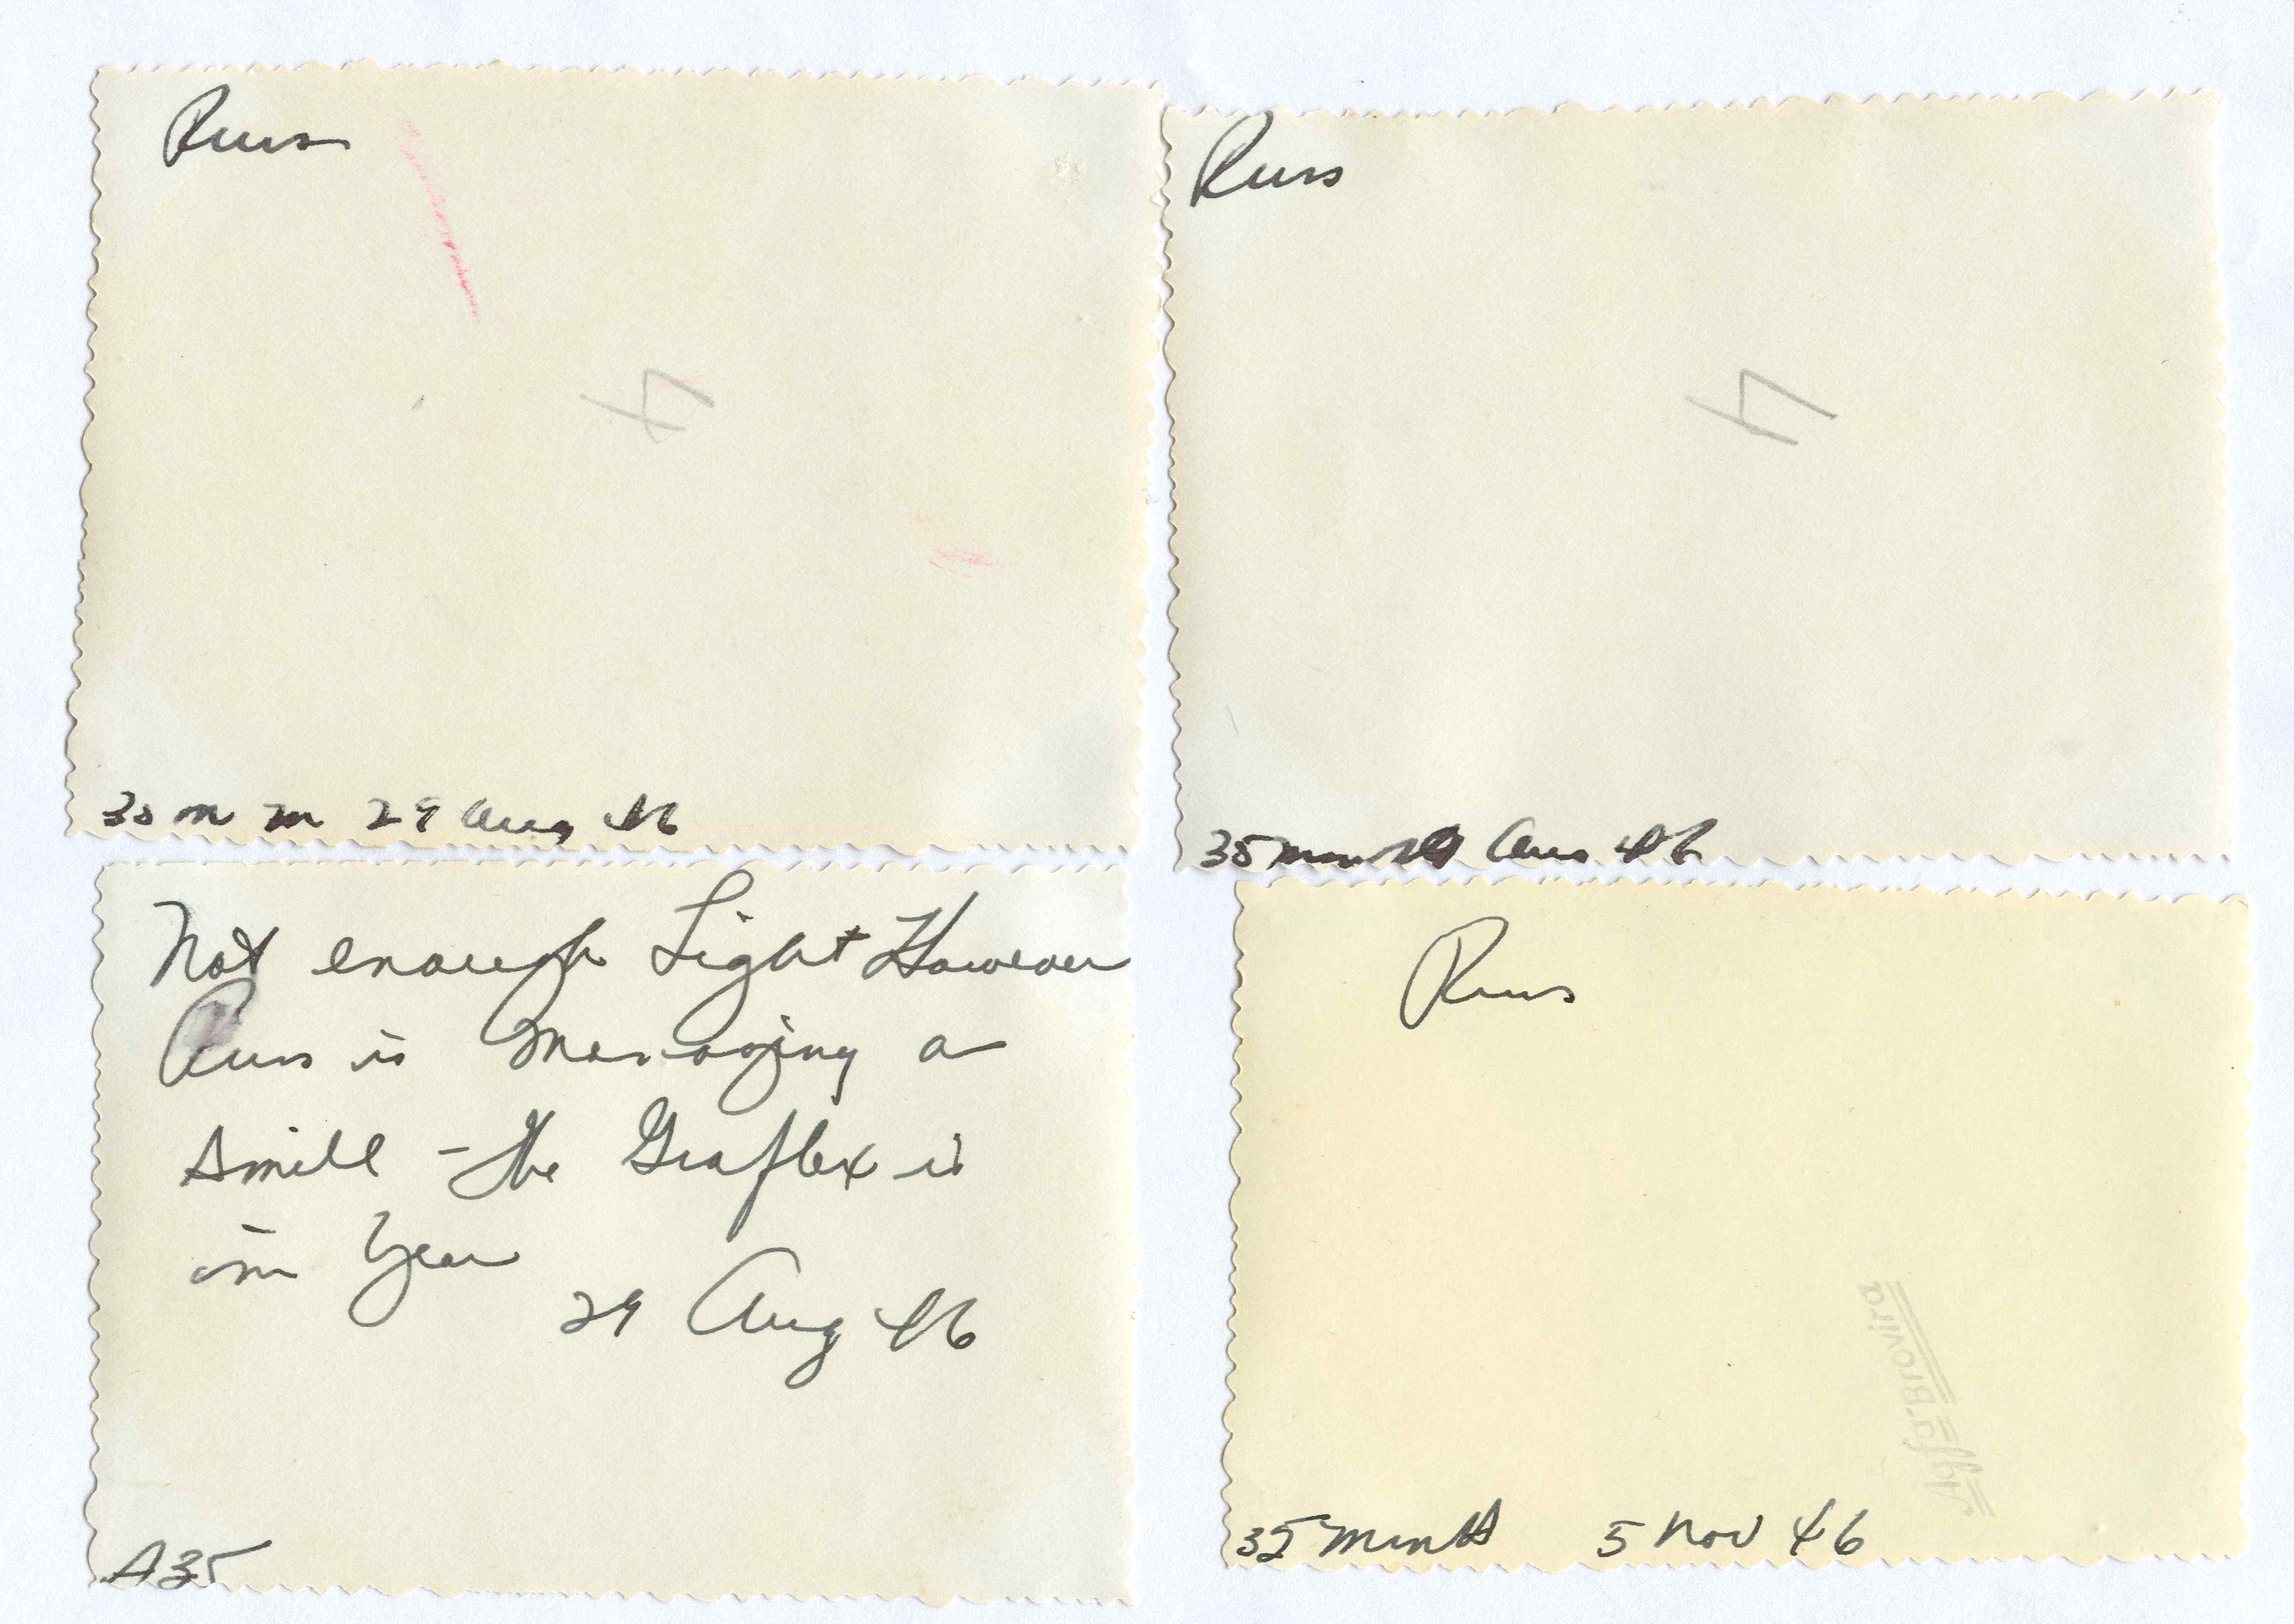 Russ
4
35 m m 29 Aug 46
Russ
4
35 Aug 46
Not enough Light However
Russ is managing a
smile - the Graflex is
in
29 Aug 46
A35
Russ
Agfa-Brovira
35 5 Nov 46